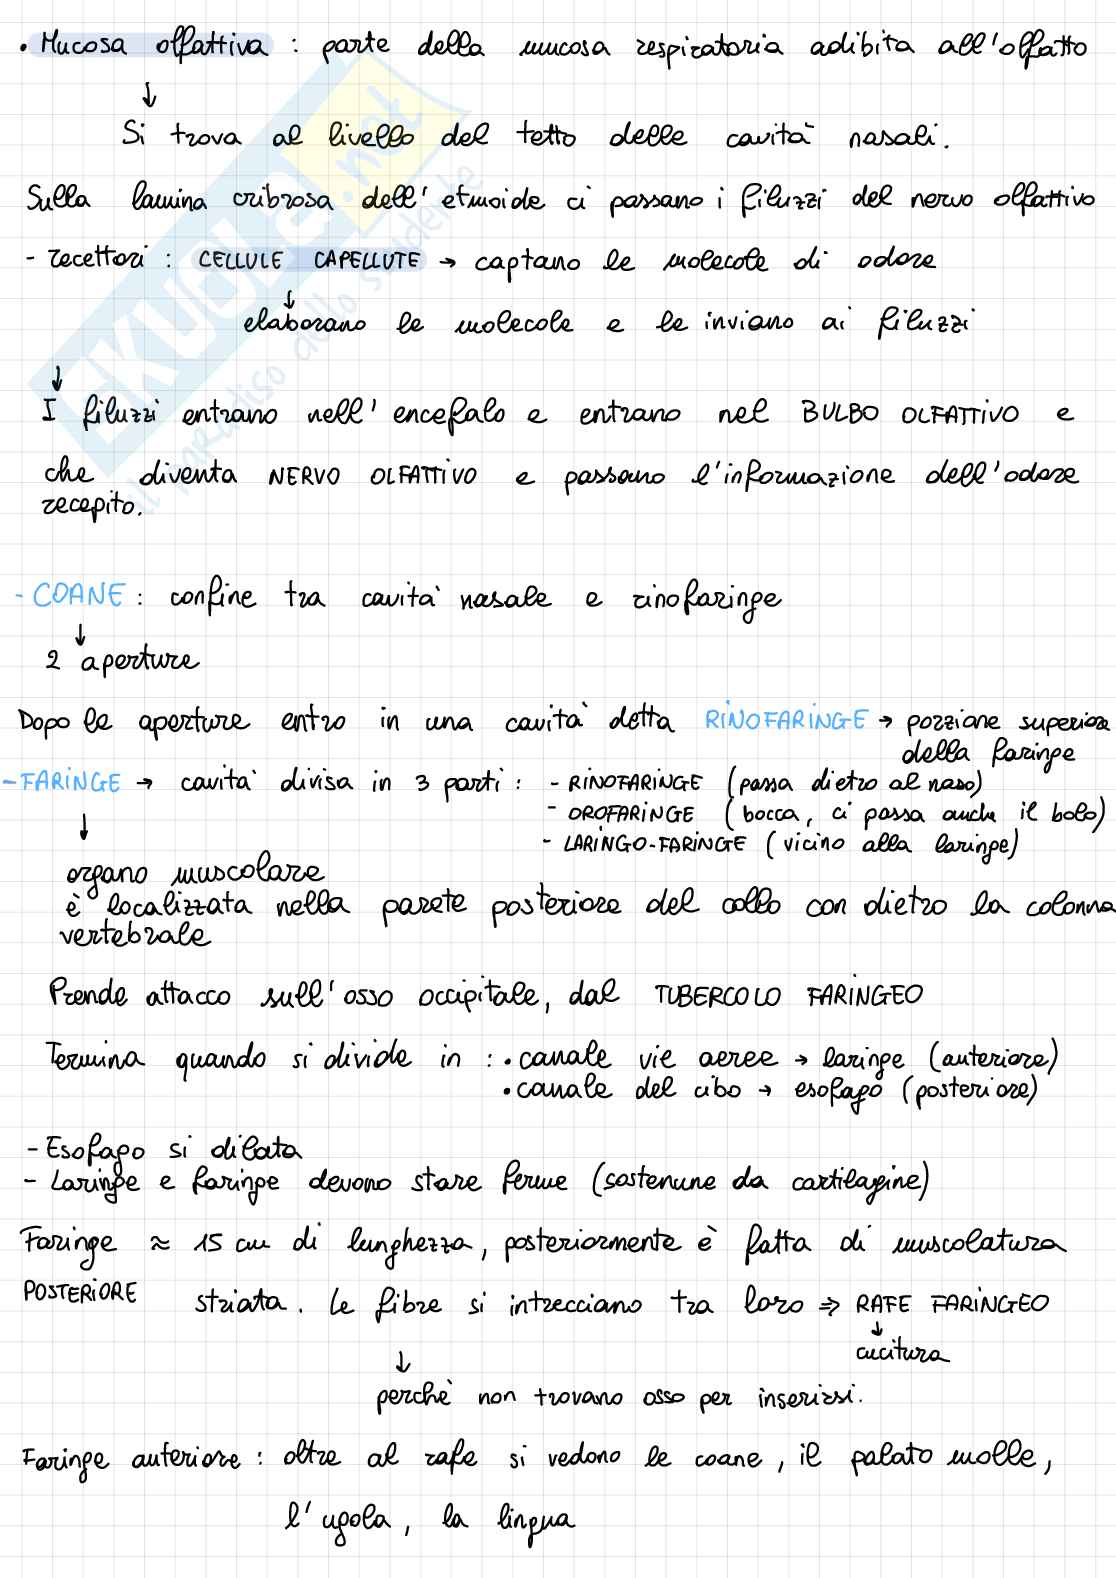 • Mucosa olfattiva : parte della mucosa respiratoria adibita all'olfatto
↓
Si trova al livello del tetto delle cavità nasali.
Sulla lamina cribrosa dell'etmoide ci passano i filuzzi del nervo olfattivo
- recettori : CELLULE CAPELLUTE → captano le molecole di odore
↓
elaborano le molecole e le inviano ai filuzzi
↓
I filuzzi entrano nell'encefalo e entrano nel BULBO OLFATTIVO e
che diventa NERVO OLFATTIVO e passano l'informazione dell'odore
recepito.
- COANE : confine tra cavità nasale e rinofaringe
↓
2 aperture
Dopo le aperture entro in una cavità detta RINOFARINGE → porzione superiore
della faringe
- FARINGE → cavità divisa in 3 parti : - RINOFARINGE (passa dietro al naso)
- OROFARINGE (bocca, ci passa anche il bolo)
- LARINGO-FARINGE (vicino alla laringe)
↓
organo muscolare
è localizzata nella parete posteriore del collo con dietro la colonna
vertebrale
Prende attacco sull'osso occipitale, dal TUBERCOLO FARINGEO
Termina quando si divide in : • canale vie aeree → laringe (anteriore)
• canale del cibo → esofago (posteriore)
- Esofago si dilata
- Laringe e faringe devono stare ferme (sostenune da cartilagine)
Faringe ≈ 15 cm di lunghezza, posteriormente è fatta di muscolatura
POSTERIORE striata. Le fibre si intrecciano tra loro ⇒ RAFE FARINGEO
↓
cucitura
↓
perchè non trovano osso per inserirsi.
Faringe anteriore : oltre al rafe si vedono le coane, il palato molle,
l'ugola, la lingua
SKUOLA.net
il paradiso dello studente